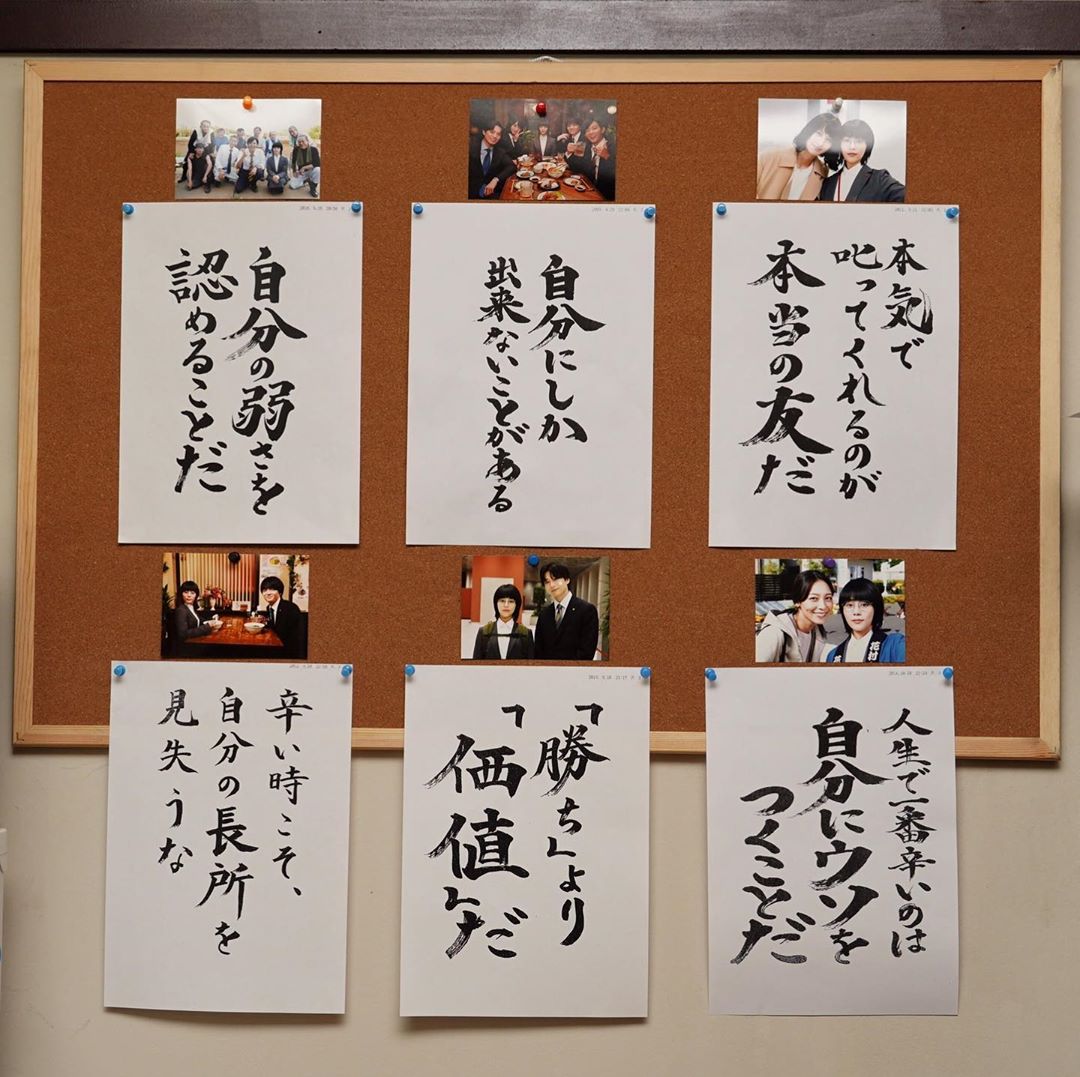 本気で
叱ってくれるのが
本当の友だ
自分にしか
出来ないことがある
自分の弱さを
認めることだ
人生で一番辛いのは
自分にウソを
つくことだ
「勝ち」より
「価値」だ
辛い時こそ、
自分の長所を
見失うな
花村